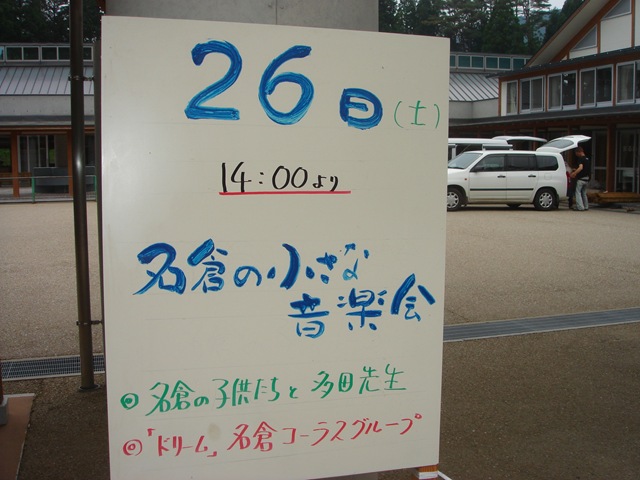 26日(土)
14:00より
名倉の小さな
音楽会
◎名倉の子供たちと 多田先生
◎「ドリーム」名倉コーラスグループ